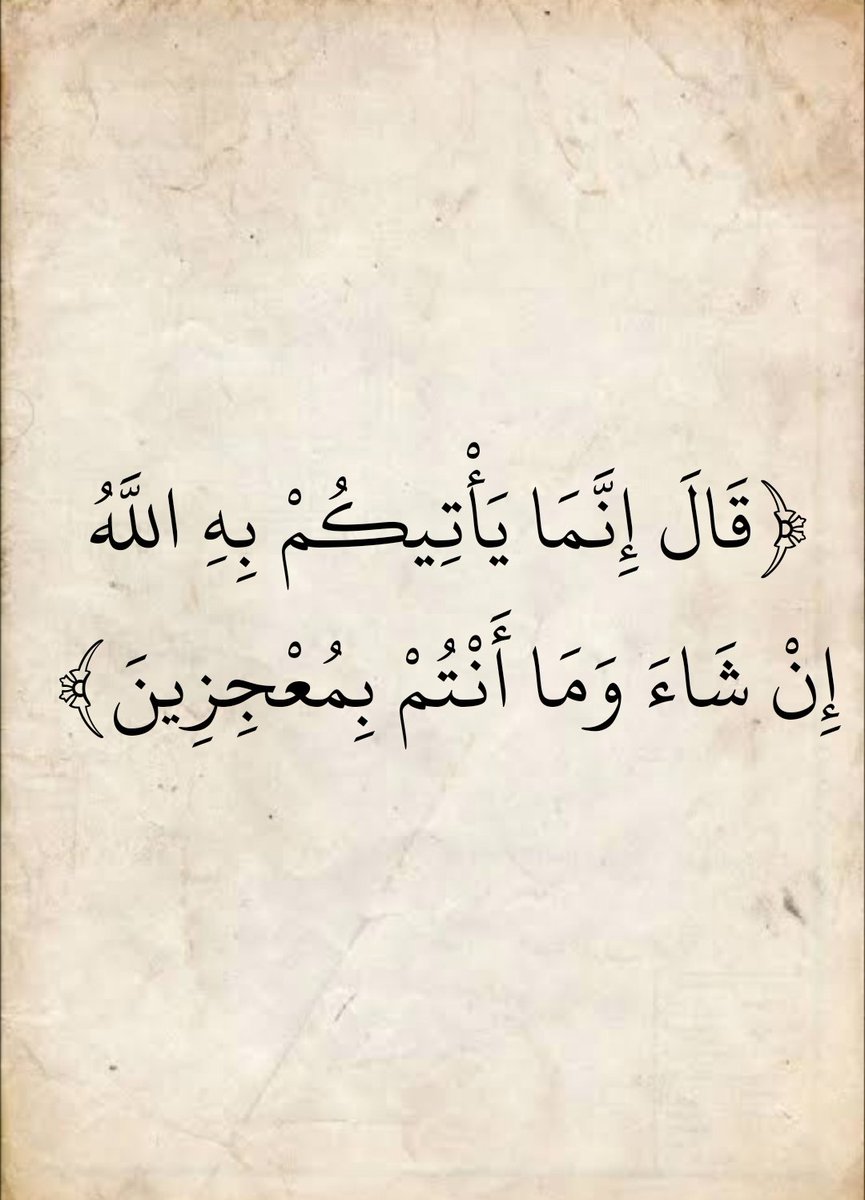 ﴿قَالَ إِنَّمَا يَأْتِيكُمْ بِهِ اللَّهُ
إِنْ شَاءَ وَمَا أَنْتُمْ بِمُعْجِزِينَ﴾